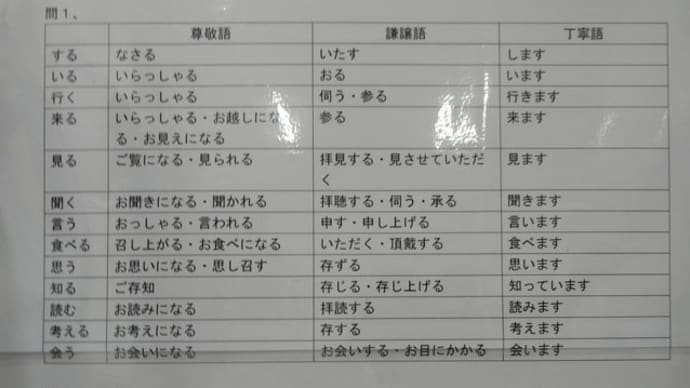 問1、
尊敬語 謙譲語 丁寧語
する なさる いたす します
いる いらっしゃる おる います
行く いらっしゃる 伺う・参る 行きます
来る いらっしゃる・お越しにな 参る 来ます
る・お見えになる
見る ご覧になる・見られる 拝見する・見させていただ 見ます
く
聞く お聞きになる・聞かれる 拝聴する・伺う・承る 聞きます
言う おっしゃる・言われる 申す・申し上げる 言います
食べる 召し上がる・お食べになる いただく・頂戴する 食べます
思う お思いになる・思し召す 存ずる 思います
知る ご存知 存じる・存じ上げる 知っています
読む お読みになる 拝読する 読みます
考える お考えになる 存する 考えます
会う お会いになる お会いする・お目にかかる 会います